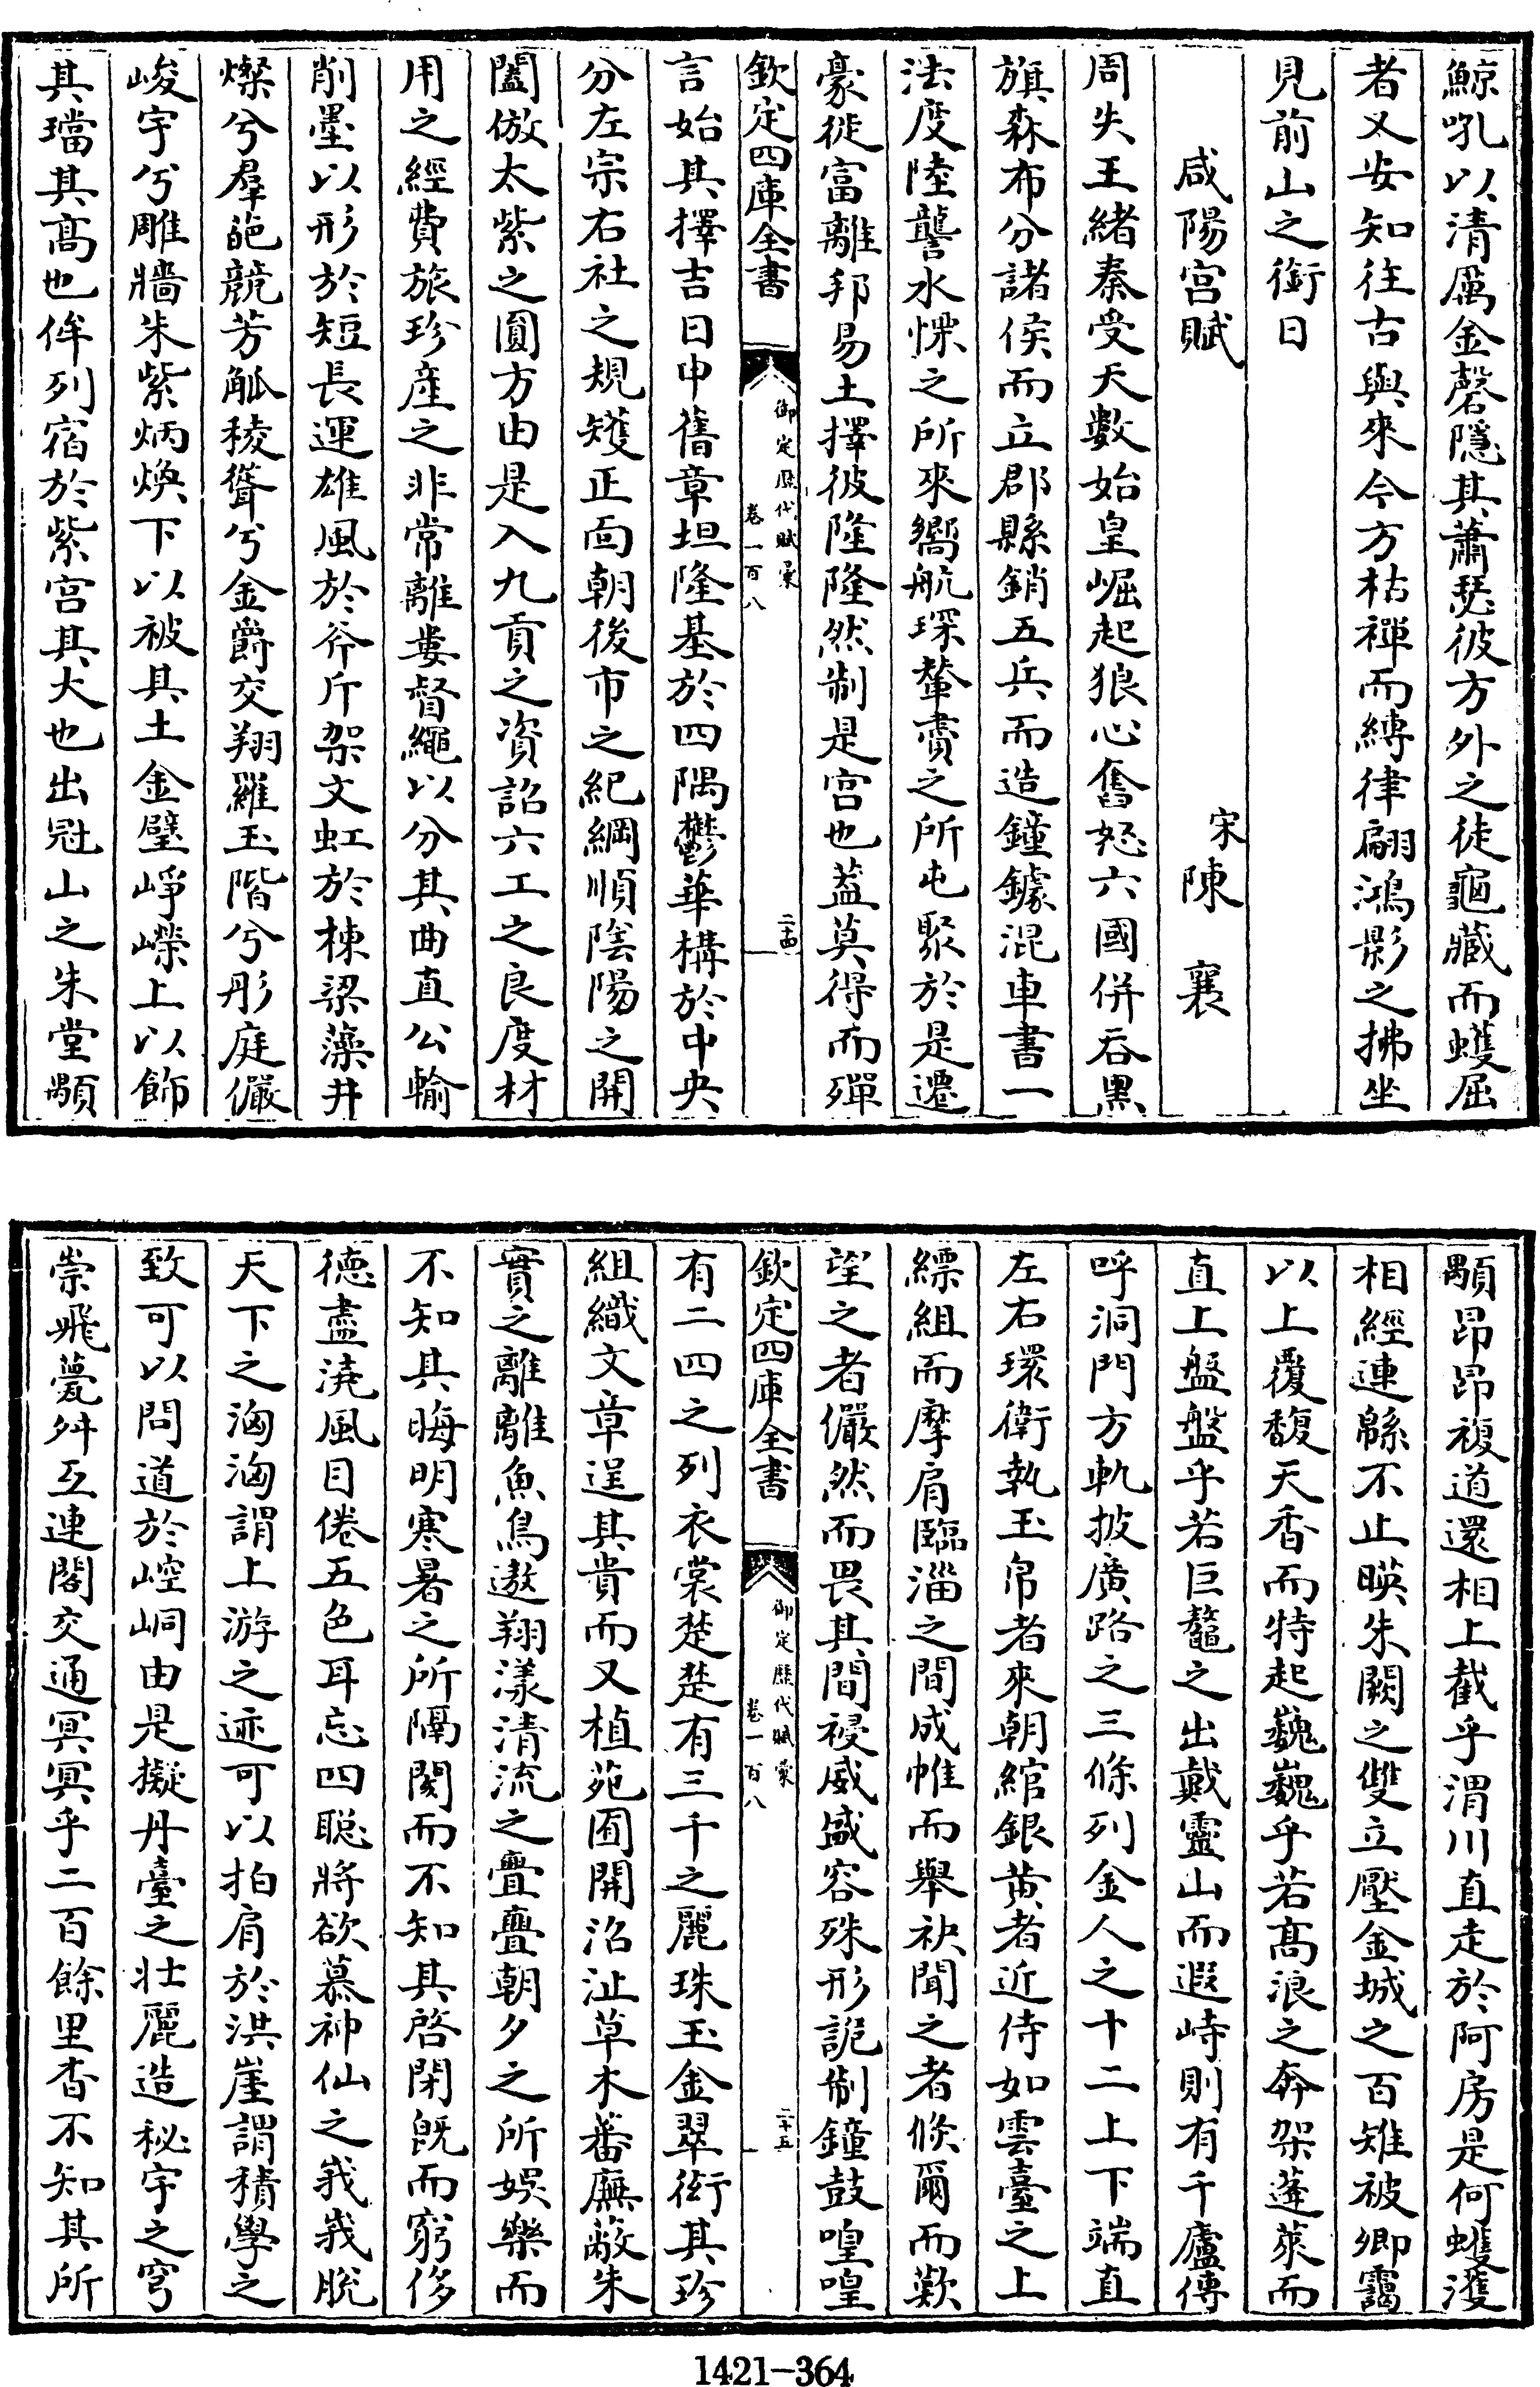 鯨吼以清厲金磬隱其蕭瑟彼方外之徒龜藏而蠖屈
者又安知往古與來今方枯禪而縛律翩鴻影之拂坐
見前山之銜日
咸陽宫賦
宋陳襄
周失王緒秦受天數始皇崛起狼心奮怒六國併吞黑
旗森布分諸侯而立郡縣銷五兵而造鐘鐻混車書一
法度陸讋水慄之所來嚮航琛輦賮之所屯聚於是遷
豪徙富離邦易土擇彼隆隆然制是宫也葢莫得而殫
欽定四庫全書
御定歴代賦彙
卷一百八
二十四
言始其擇吉日申舊章坦隆基於四隅鬱華構於中央
分左宗右社之規矱正面朝後市之紀綱順陰陽之開
闔倣太紫之圓方由是入九貢之資詔六工之良度材
用之經費旅珍產之非常離婁督繩以分其曲直公輸
削墨以形於短長運雄風於斧斤架文虹於棟梁藻井
燦兮羣葩競芳觚稜聳兮金爵交翔羅玉階兮彤庭儼
峻宇兮雕牆朱紫炳煥下以被具土金璧崢嶸上以飾
其璫其髙也侔列宿於紫宫其大也出冠山之朱堂顒
顒昂昂複道還相上截乎渭川直走於阿房是何蠖濩
相經連緜不止暎朱闕之雙立壓金城之百雉被卿靄
以上覆馥天香而特起巍巍乎若髙浪之奔架蓬萊而
直上盤盤乎若巨鼇之出戴靈山而遐峙則有千廬傳
呼洞門方軌披廣路之三條列金人之十二上下端直
左右環衛執玉帛者來朝綰銀黄者近侍如雲臺之上
縹組而摩肩臨淄之間成帷而舉袂聞之者倐爾而歎
望之者儼然而畏其間祲威盛容殊形詭制鐘鼓喤喤
欽定四庫全書
御定歴代賦彙
卷一百八
二十五
有二四之列衣裳楚楚有三千之麗珠玉金翠衒其珍
組織文章逞其貴而又植苑囿開沼沚草木蕃廡蔽朱
實之離離魚鳥遨翔漾清流之亹亹朝夕之所娯樂而
不知其晦明寒暑之所隔閡而不知其啓閉既而窮侈
德盡澆風目倦五色耳忘四聰將欲慕神仙之峩峩脫
天下之洶洶謂上游之迹可以拍肩於洪崖謂積學之
致可以問道於崆峒由是擬丹臺之壯麗造秘宇之穹
崇飛甍舛互連閣交通冥冥乎二百餘里杳不知其所
1421-364